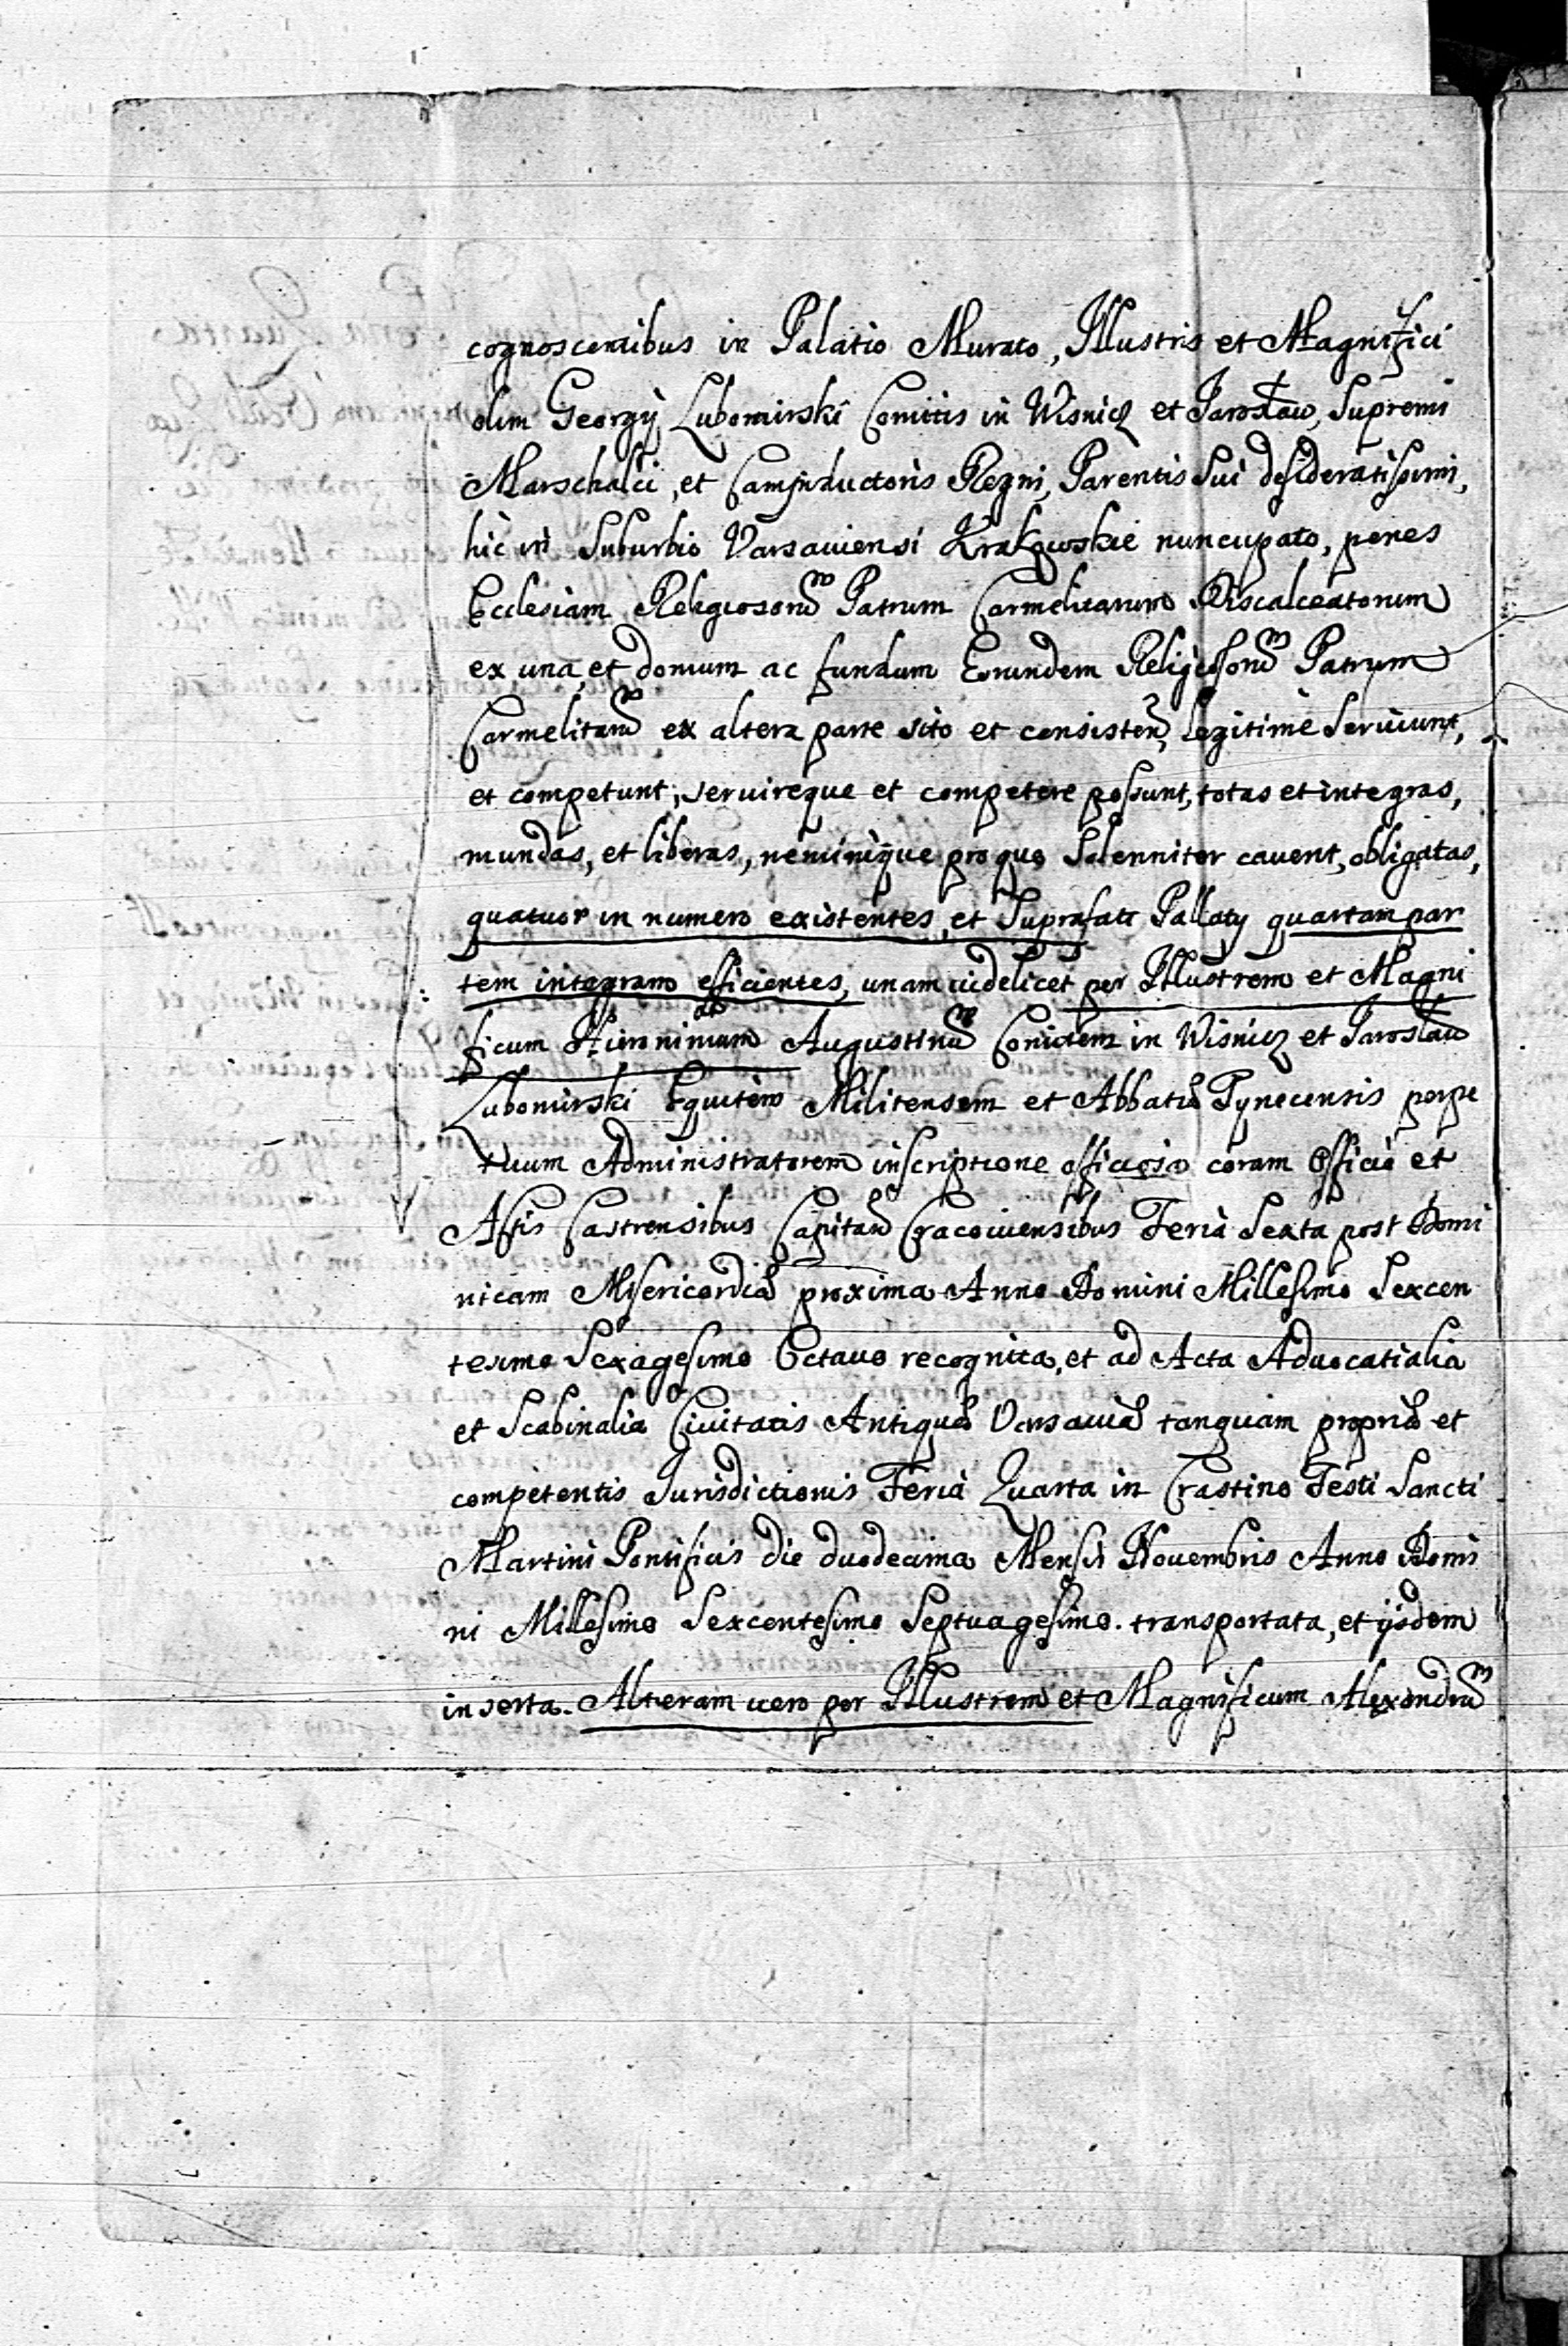 cognoscentibus in Palatio Murato, Illustris et Magnifici
olim Georgÿ Lubomirski Comitis in Wisnicz et Jarosław, Supremi
Marschalci, et Campiductoris Regni, Parentis Sui desideratissimi,
hic in Suburbio Varsauiensi Krakowskie nuncupato, penes
Ecclesiam Religiosorũ Patrum Carmelitarum Discalceatorum
ex una, et domum ac fundum Eorundem Religiosorũ Patrum
Carmelitarũ ex altera parte sito et consisten, legitime seruiunt,
et competunt, seruireque et competere possunt, totas et integras,
mundas, et liberas, neminique pro quo Solenniter cauent, obligatas,
quatuor in numero existentes, et Suprafati Pallatÿ quartam par
tem integram efficientes, unam uidelicet per Illustrem et Magni
ficum Hieronimum Augustinũ Comitem in Wisnicz et Jarosław
Lubomirski Equitem Militensem et Abbatiæ Tynecensis perpe
tuum Administratorem inscriptione officiosa coram Officio et
Actis Castrensibus Capitan Cracouiensibus Feria Sexta post Domi
nicam Misericordiæ proxima Anno Domini Millesimo Sexcen
tesimo Sexagesimo Octauo recognita, et ad Acta Aduocatialia
et Scabinalia Ciuitatis Antiquæ Varsauiæ tanquam propriæ et
competentis Jurisdictionis Feria Quarta in Crastino Festi Sancti
Martini Pontificis die duodecima Mensis Nouembris Anno Domi
ni Millesimo Sexcentesimo Septuagesimo transportata, et ijsdem
inserta. Alteram uero per Illustrem et Magnificum Alexandrũ